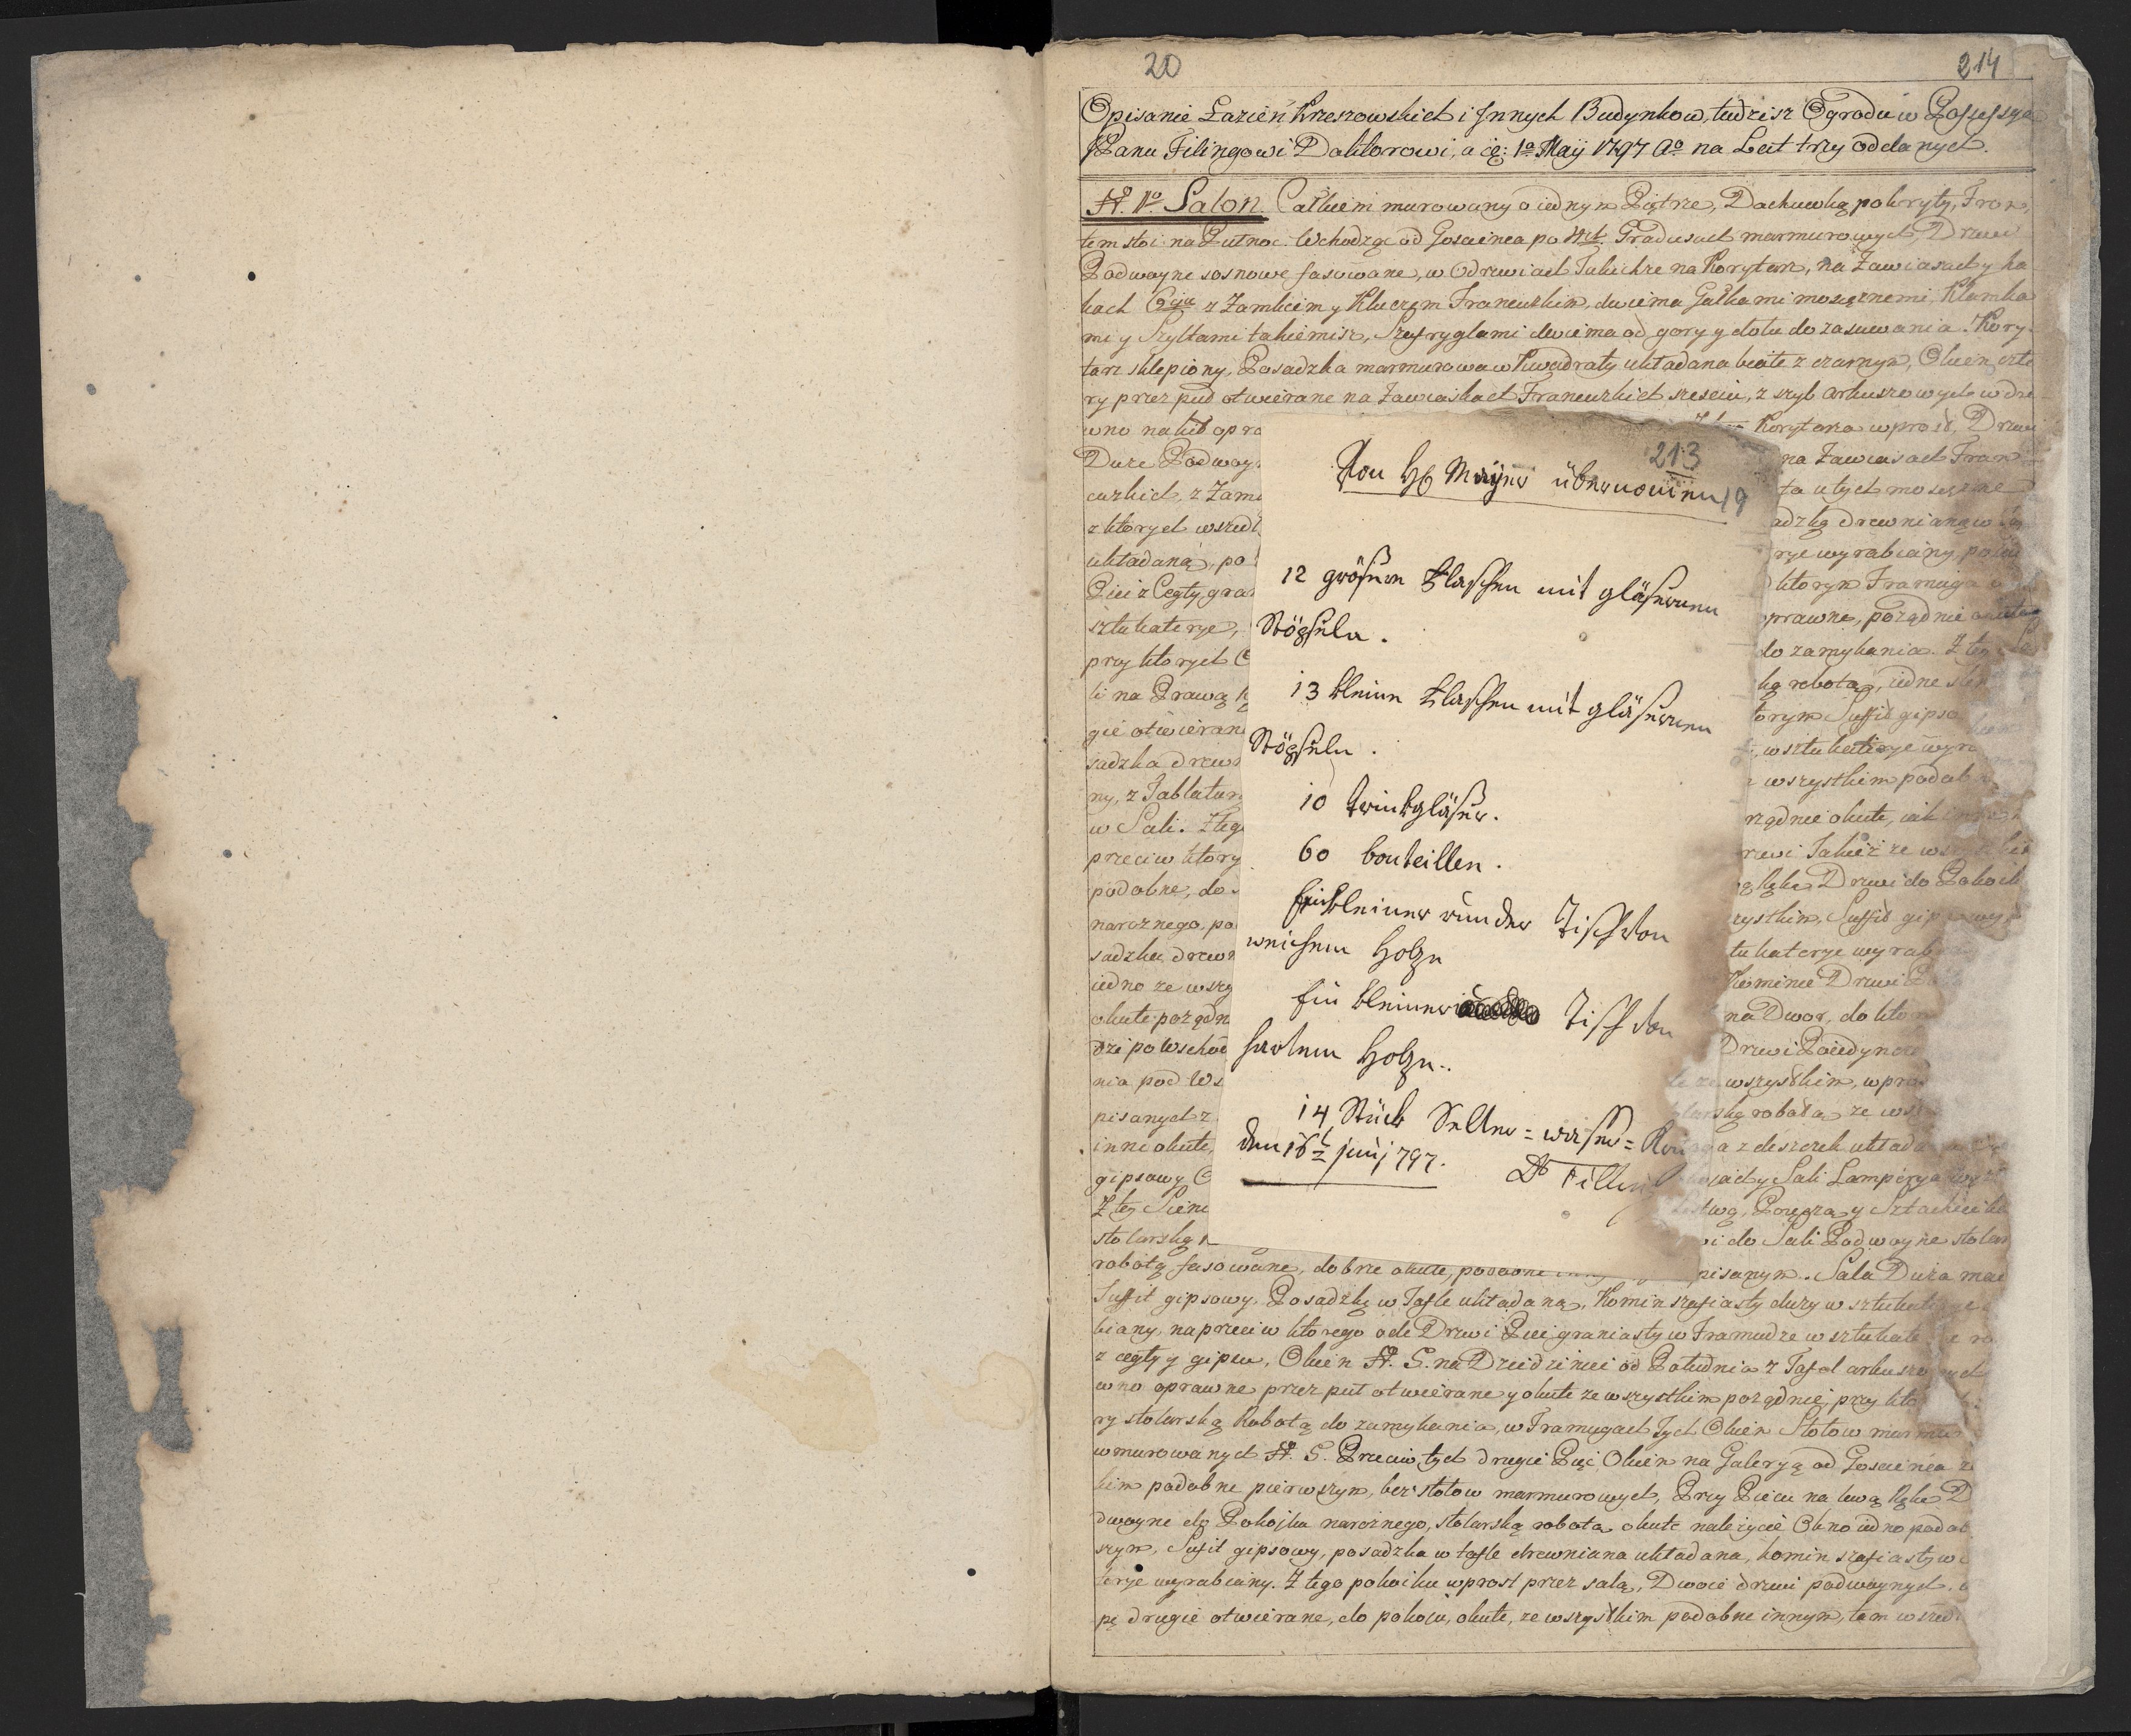 20
214
Opisanie Łazień Krzeszowskich i Jnnych Budynkow, tudzisz Ogrodu w Possessyą
JPanu Filingowi Doktorowi, a 1a Maij 1797 Ao na Lat trzy oddanych.
N. 1o Salon. Całkiem murowany o iednym Piętrze, Dachuwką pokryty, Fron,
tem stoi na Putnoc. Wchodząc od Goscinca po Gradusach marmurowych, Drzwi
Podwoyne sosnowe fasowane, w Odrzwiach Takichze na Korytarz, na Zawiasach y ha
kach z Zamkiem y Kluczem Francuzkim, dwiema Gałkami mosięznemi Klamka
mi y Szyltami takiemisz, Szufryglami dwiema od gory y dołu do zasuwania. Kory
tarz sklepiony, Posadzka marmurowa w Kwadraty układana białe z czarnym, Okien czte
ry przez puł otwierane na Zawiaskach Francuzkich szesciu, z szyb arkuszowych w drze
wno nakit opra
Korytarza wprost, Drzwi
Duze Podwoy
na Zawiasach Fran
cuzkich, z Zam
ta u tych mosięzne
z ktorych wszed
adzką drewnianą w
układaną, po
rye wyrabiany,
Piec z Cegły, gra
ktorym Framuga
sztukaterye,
oprawne, porządnie okute
przy ktorych O
do zamykania. Z tey
ki na Prawą
ką robotą, iedne
gie otwieran
torym Suffit gips
sadzka drew
w sztukaterye wyr
ny, z Tablatur
wszystkim podob
w Sali. Z teg
rządnie okute, iak inne
przeciw ktory
rzwi Takiez ze wszystkim
podobne, do
Drzwi do Pokoik
naroznego, po
zystkim, Suffit gipsowy
sadzka drew
tukaterye wyrab
iedno ze wszy
Kominie Drzwi
okute porządn
na Dwor, do kto
dzi po Wschod
Drzwi Poiedyncze
nia pod Ws
wszystkim, wpros
pisanych z
robota ze ws
inni okute,
z deszczek układa
gipsowy O
y Sali Lamperya
Z tey Sieni
Poręczą y Sztachetk
stolarską
i do Sali Podwoyne stolar
robotą fasowane, dobrze okute, podobne pisanym. Sala Duza ma
Suffit gipsowy, Posadzkę w Tafle układaną, Komin szafiasty duzy w sztukaterye
biany, naprzeciw ktorego ode Drzwi Piec graniasty w Framudze w sztukate
z cegły y gipsu, Okien N. 5. na Dziedziniec od Południa z Tafel arkuszowych
wno oprawne przez puł otwierane y okute ze wszystkim porządnie, przy kto
ry stolarską Robotą do zamykania, w Framugach Tych Okien Stołow marmur
wmurowanych N. 5. Przeciw tych drugie Pięć Okien na Galeryą od Goscinca z
kim podobne pierwszym, bez stołow marmurowych, Przy Piecu na lewą Rękę D
dwoyne do Pokojku naroznego, stolarską robotą okute nalezycie Okno iedno podob
szym, Sufit gipsowy, posadzka w tafle drewniana układana, komin szafiasty w
terye wyrabiany. Z tego pokoiku wprost przez salą, Dwoie drzwi podwoynych,
pę drugie otwierane, do pokoiu, okute, ze wszystkim podobne innym, tam wszed
213
Von H Mayer übernom̅en
19
12 grösere Flaschen mit gläsernen
Stöpseln.
13 kleine Flaschen mit gläsernen
Stöpseln.
10 trinkgläser.
60 bouteillen.
Ein kleiner runder Tisch von
weichem Holze
Ein kleiner Tisch von
hartem Holze.
14 Stück Selter=wasser=Krüge
den 16t juni 797.
Dr Filling